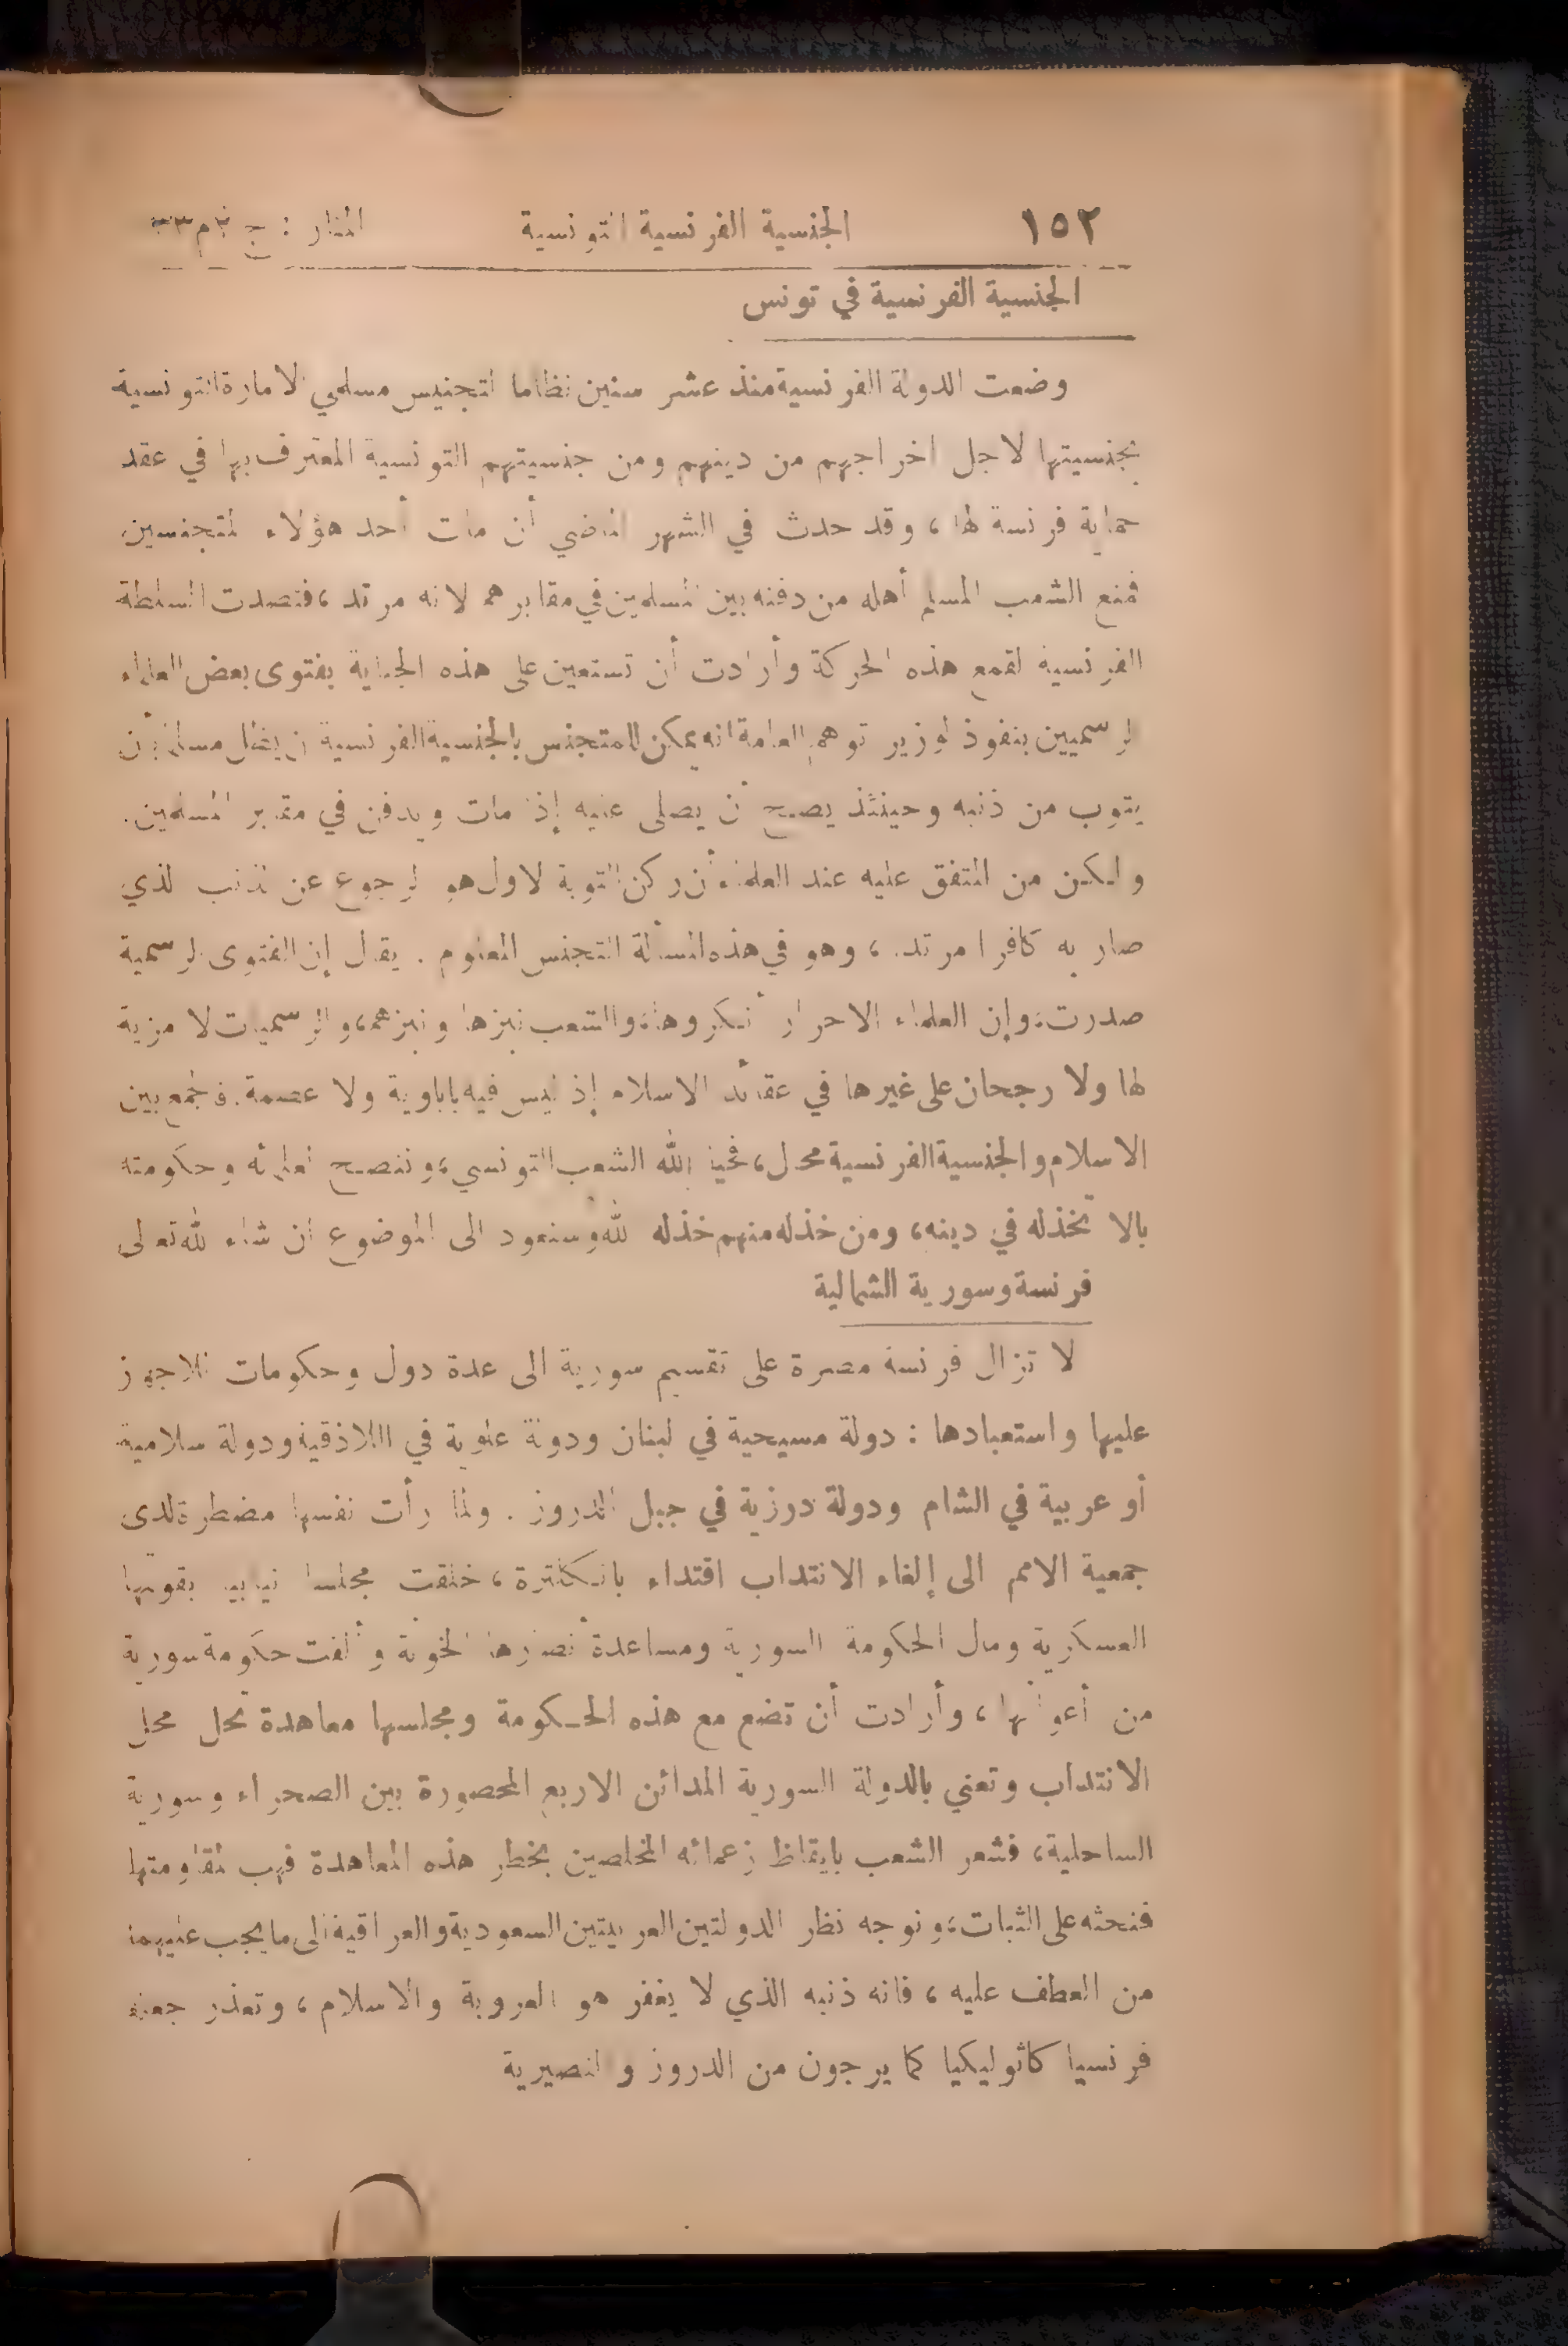 ١٥٢ الجنسية الفرنسية التونسية المنار : ج ٢ م ٣٣
الجنسية الفرنسية في تونس
وضعت الدولة الفرنسية منذ عشر سنين نظاما لتجنيس مسلمي الامارة التونسية
بجنسيتها لاجل اخراجهم من دينهم ومن جنسيتهم التونسية المعترف بها في عقد
حماية فرنسة لها ، وقد حدث في الشهر الماضي أن مات أحد هؤلاء المتجنسين
فمنع الشعب المسلم أهله من دفنه بين المسلمين في مقابرهم لانه مرتد ، فتصدت السلطة
الفرنسية لقمع هذه الحركة وأرادت أن تستعين على هذه الجناية بفتوى بعض العلماء
الرسميين بنفوذ الوزير توهم العامة انه يمكن للمتجنس بالجنسية الفرنسية أن يظل مسلما بأن
يتوب من ذنبه وحينئذ يصح أن يصلى عليه إذا مات ويدفن في مقابر المسلمين.
ولكن من المتفق عليه عند العلماء أن ركن التوبة الاول هو الرجوع عن الذنب الذي
صار به كافرا مرتدا ، وهو في هذه المسألة التجنس المعلوم . يقال إن الفتوى الرسمية
صدرت ، وإن العلماء الاحرار أنكروها ، والشعب نبزها ونبزهم ، والرسميات لا مزية
لها ولا رجحان على غيرها في عقائد الاسلام إذ ليس فيه باباوية ولا عصمة . فالجمع بين
الاسلام والجنسية الفرنسية محال ، فحيا الله الشعب التونسي ، وننصح لعلمائه وحكومته
بالا تخذله في دينه ، ومن خذله منهم خذله الله وسنعود الى الموضوع ان شاء الله تعالى
فرنسة وسورية الشمالية
لا تزال فرنسة مصرة على تقسيم سورية الى عدة دول وحكومات للاجهاز
عليها واستعبادها : دولة مسيحية في لبنان ودولة علوية في اللاذقية ودولة اسلامية
أو عربية في الشام ودولة درزية في جبل الدروز . ولما رأت نفسها مضطرة لدى
جمعية الامم الى إلغاء الانتداب اقتداء بانكلترة ، خلقت مجلسا نيابيا بقوتها
العسكرية ومال الحكومة السورية ومساعدة أنصارها الخونة وألفت حكومة سورية
من أعوانها ، وأرادت أن تضع مع هذه الحكومة ومجلسها معاهدة تحل محل
الانتداب وتعني بالدولة السورية المدائن الاربع المحصورة بين الصحراء وسورية
الساحلية ، فشعر الشعب بايقاظ زعمائه المخلصين بخطر هذه المعاهدة فهب لمقاومتها
فنحثه على الثبات ، ونوجه نظر الدولتين العربيتين السعودية والعراقية الى ما يجب عليهما
من العطف عليه ، فانه ذنبه الذي لا يغفر هو العروبة والاسلام ، وتعذر جعله
فرنسيا كاثوليكيا كما يرجون من الدروز والنصيرية